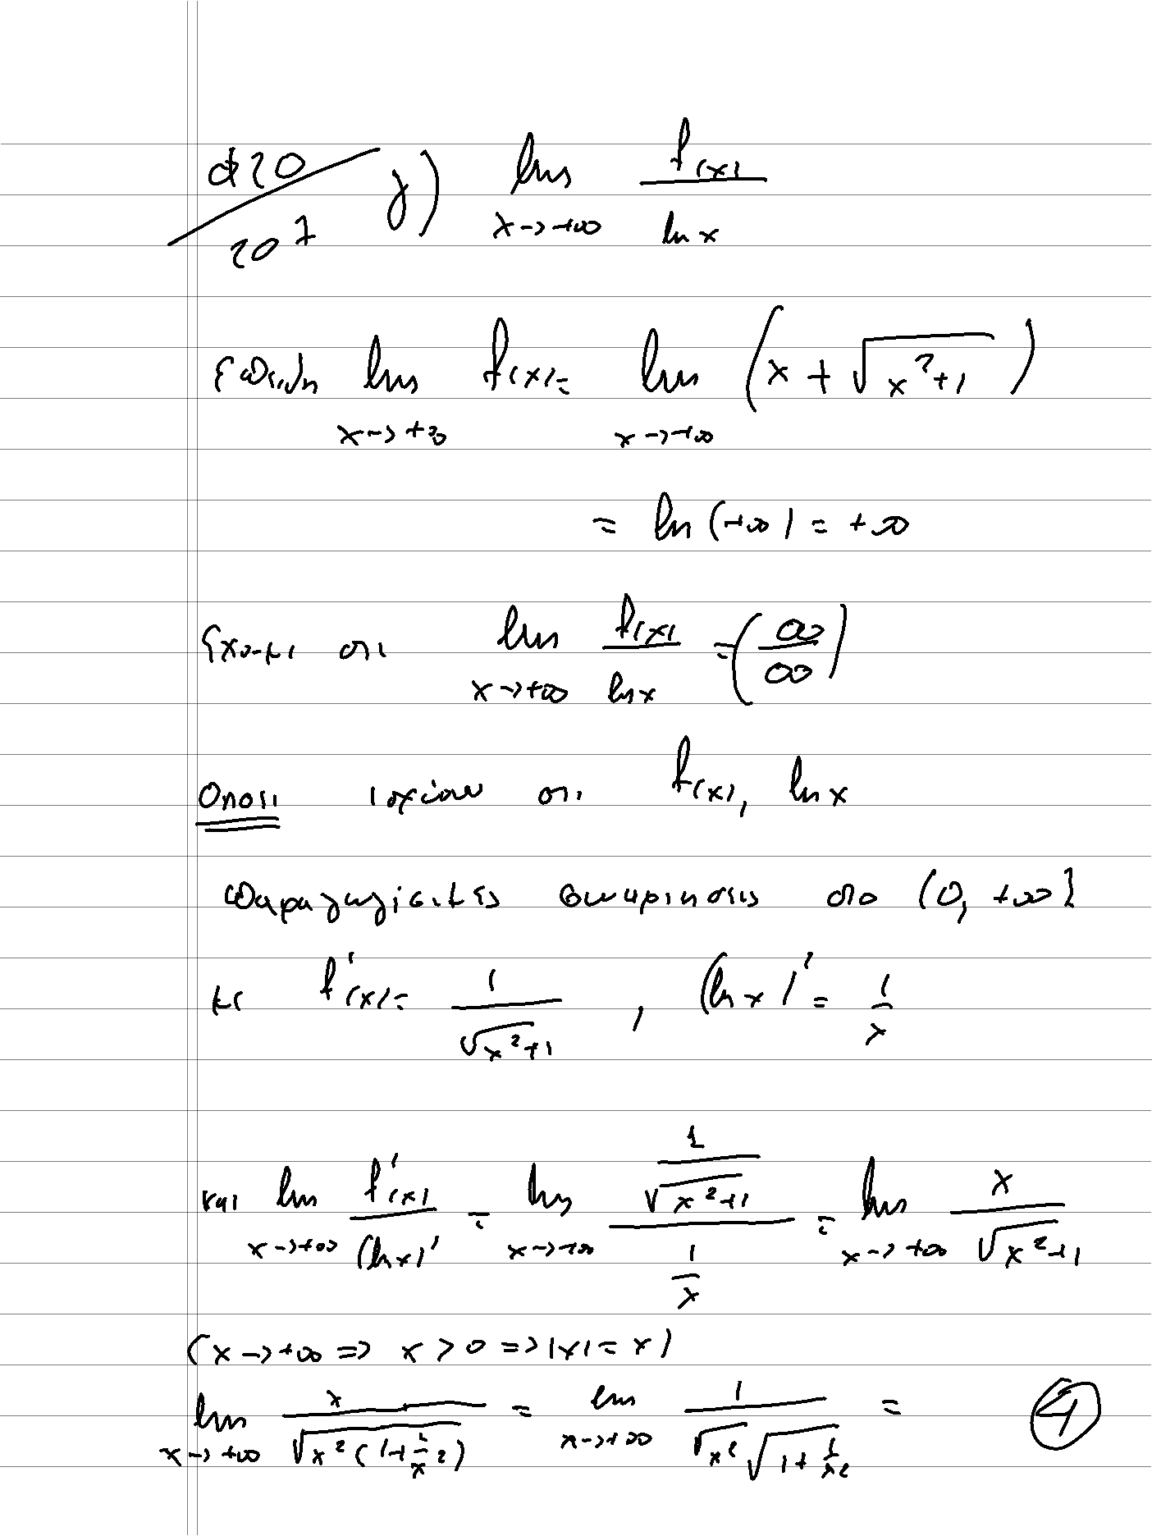 α20/207 γ) lim x→+∞ f(x)/ln x
Επειδη lim x→+∞ f(x) = lim x→+∞ (x + √(x²+1))
= ln(+∞) = +∞
Εχουμε οτι lim x→+∞ f(x)/ln x = (∞/∞)
Οποτε ισχύουν οτι f(x), ln x
παραγωγίσιμες συναρτησεις στο (0, +∞)
με f'(x) = 1/√(x²+1) , (ln x)' = 1/x
και lim x→+∞ f'(x)/(ln x)' = lim x→+∞ (1/√(x²+1))/(1/x) = lim x→+∞ x/√(x²+1)
(x→+∞ ⇒ x>0 ⇒ |x| = x)
lim x→+∞ x/√(x²(1+1/x²)) = lim x→+∞ 1/(√x² √(1+1/x²)) =